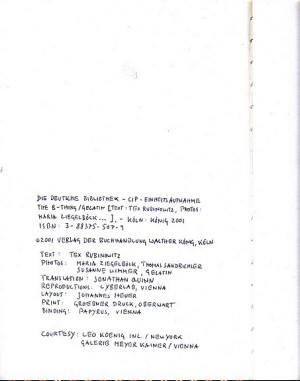 DIE DEUTSCHE BIBLIOTHEK - CIP - EINHEITSAUFNAHME
THE B-THING / GELATIN [TEXT: TEX RUBINOWITZ, PHOTOS:
MARIA ZIEGELBÖCK ... ]. - KÖLN: KÖNIG 2001
ISBN: 3-88375-507-9
©2001 VERLAG DER BUCHHANDLUNG WALTHER KÖNIG, KÖLN
TEXT: TEX RUBINOWITZ
PHOTOS: MARIA ZIEGELBÖCK, THOMAS SANDBICHLER
SUSANNE WIMMER, GELATIN
TRANSLATION: JONATHAN QUINN
REPRODUCTIONS: CYBERLAB, VIENNA
LAYOUT: JOHANNES HEUER
PRINT: GROEBNER DRUCK, OBERWART
BINDING: PAPYRUS, VIENNA
COURTESY: LEO KOENIG INC. / NEW YORK
GALERIE MEYER KAINER / VIENNA